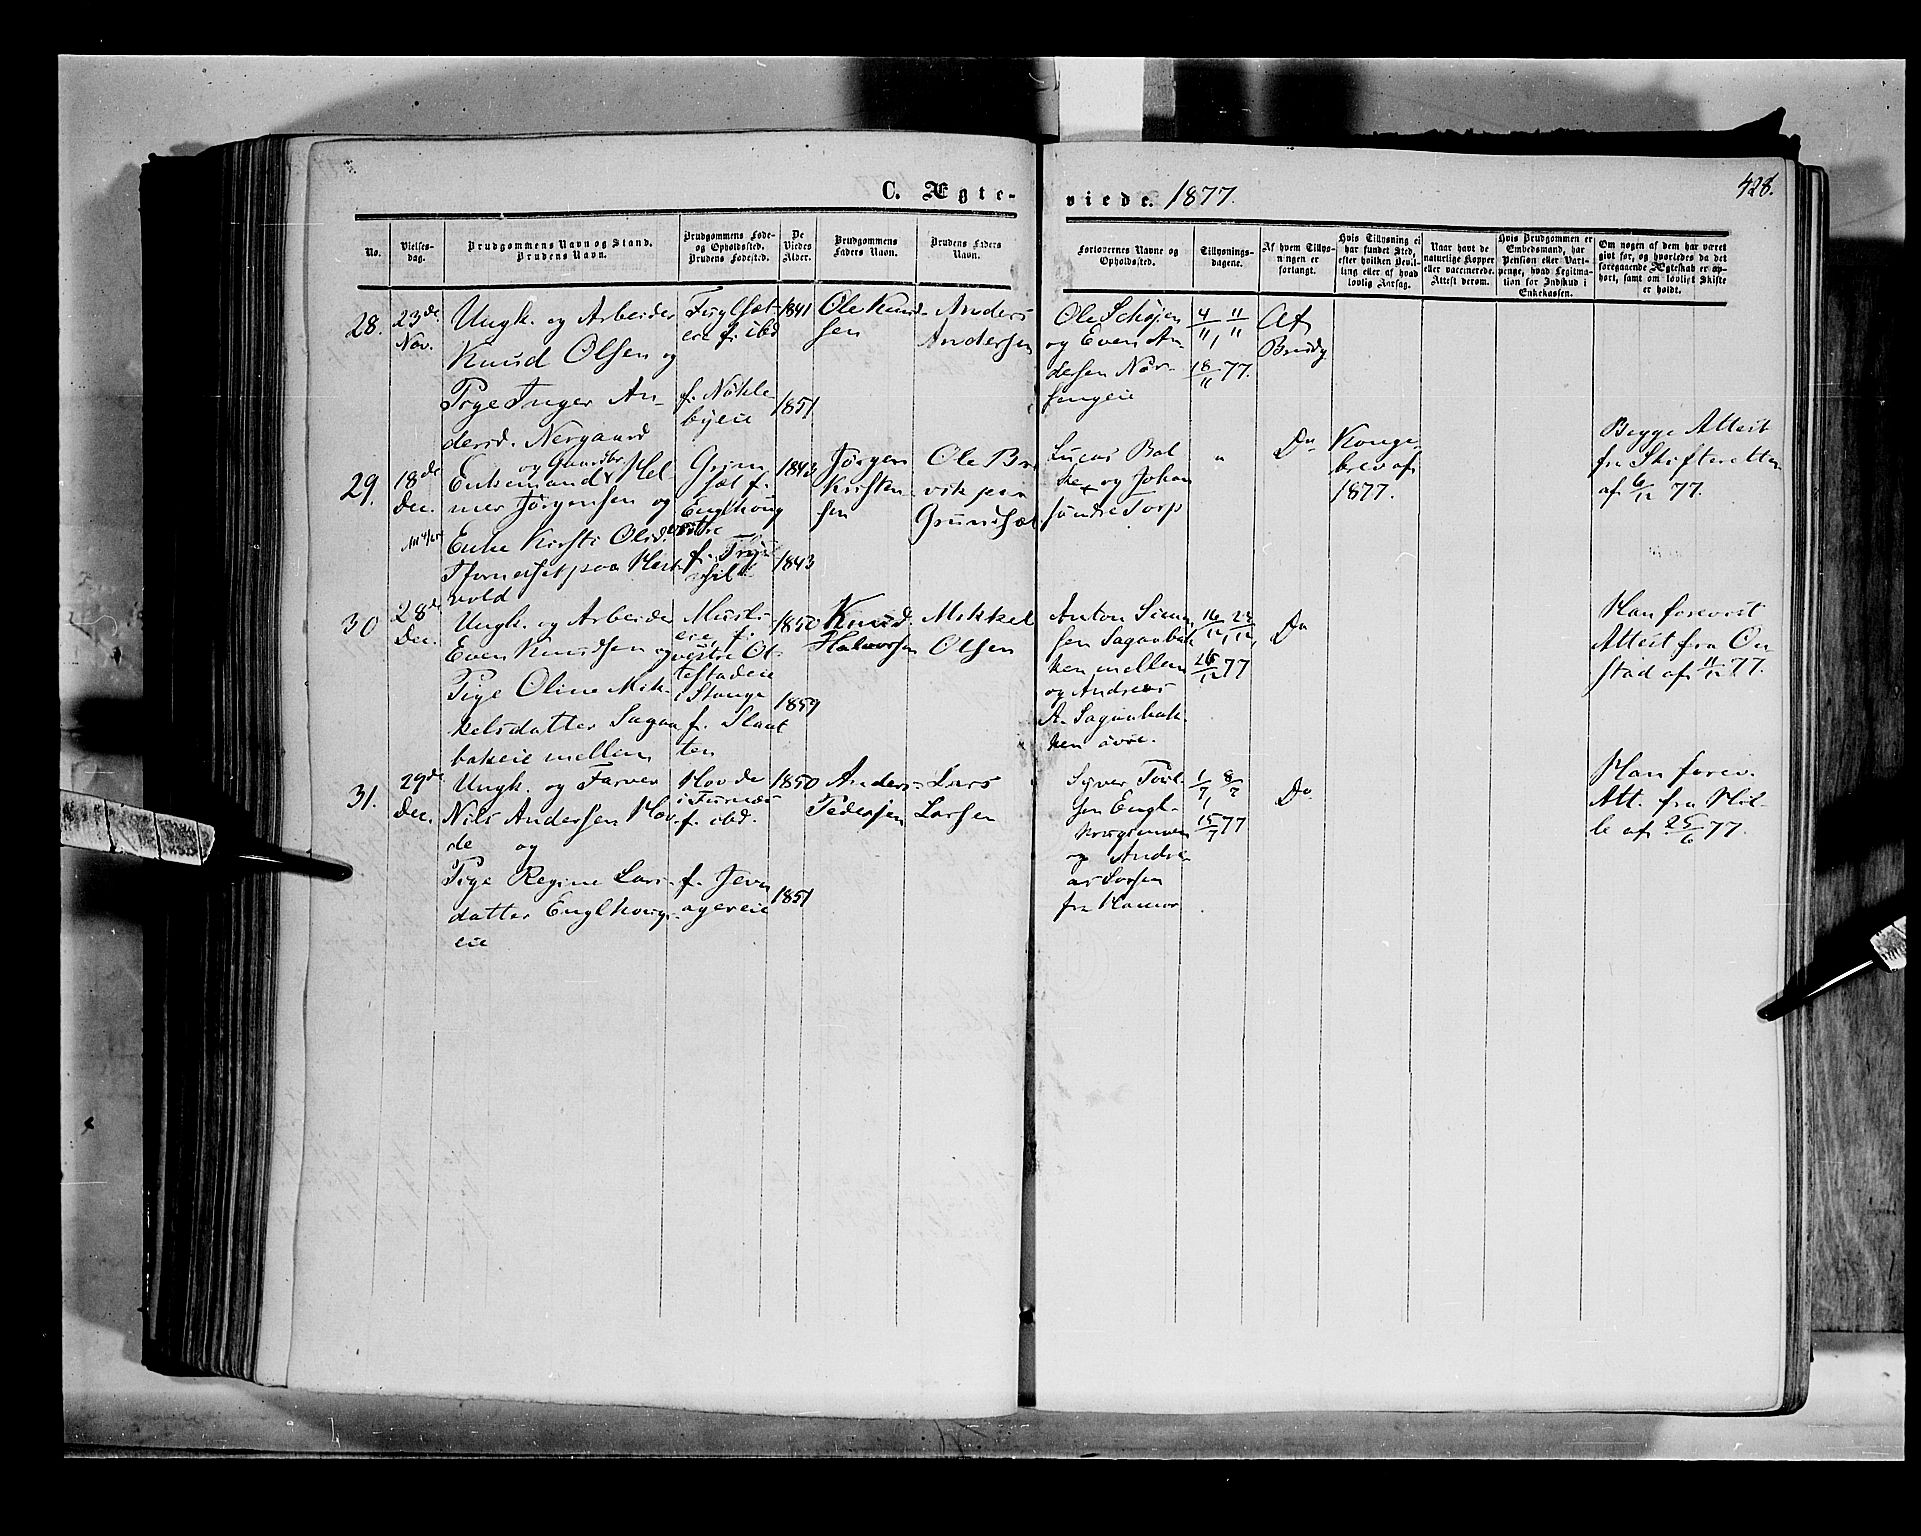 C. Ægte-
viede. 1877.
428.
No.
Vielses-
dag.
Brudgommens Navn og Stand.
Brudens Navn.
Brudgommens Føde-
og Opholdssted.
Brudens Fødested.
De
Viedes
Alder.
Brudgommens
Faders Navn.
Brudens Faders
Navn.
Forlovernes Navne og
Opholdssted.
Tillysnings-
dagene.
Af hvem Tillys-
ningen er
forlangt.
Hvis Tillysning ei
har fundet Sted,
efter hvilken Bevil-
ling eller af hvad
lovlig Aarsag.
Naar havt de
naturlige Kopper
eller vaccinerede.
Attest derom.
Hvis Brudgommen er
Embedsmand, har
Pension eller Vart-
penge, hvad Legitima-
tion for Indskud i
Enkekassen.
Om nogen af dem har været
gift før, og hvorledes da det
foregaaende Ægteskab er op-
hørt, samt om lovligt Skifte
er holdt.
28.
23de
Nov.
Ungk. og Arbeider
Knud Olsen og
Pige Inger An-
dersd. Nergaard
Fuglsæt-
eie f. ibd
f. Nøkle-
byeie
1841
1851
Ole Knud-
sen
Anders
Andersen
Ole Schøien
og Even An-
dersen Nor-
sengeie
4/11, 11/11
18/11 77.
Af
Brudg
29.
18de
Dec.
Enkemand og Gaardbr. Hel-
mer Jørgensen og
Enke Kirsti Olsd.
paa Hest-
vold
Grim-
sæt f.
Englhoug
f. Try-
sil
1843
1843
Jørgen
Kristen-
sen
Ole Bre-
vik paa
Grundsæt
Lucas Bak-
ke og Johan
søndre Torp
"
Do
Konge-
brev af
1877.
Begge Attest
fra Skifteretten
af 6/12 77.
30
28de
Dec.
Ungk. og Arbeider
Even Knudsen og
Pige Oline Mik-
kelsdatter Sagaa-
bakeie mellem
eie, f.
vestre Ot-
testadeie
i Stange
f. Slaat-
ten
1850
1859
Knud
Halvorsen
Mikkel
Olsen
Anton Simen-
sen Sagaabak-
ken mellem
og Andreas
A. Sagaabak-
ken øvre.
16/12, 23/12,
26/12 77
Do
Han foreviist
Attest fra On-
stad af 11/12 77.
31.
29de
Dec.
Ungk. og Farver
Nils Andersen Hov-
de og
Pige Regine Lars-
datter Englhoug-
eie
Hovde
i Furnæs
f. ibd.
f. Jevn-
agereie
1850
1851
Anders
Pedersen
Lars
Larsen
Syver Povl-
sen Engl-
og Andre-
as Larsen
fra Hamar
1/7, 8/7
15/7 77
Do
Han forev.
Att. fra Hol-
le af 25/6 77.